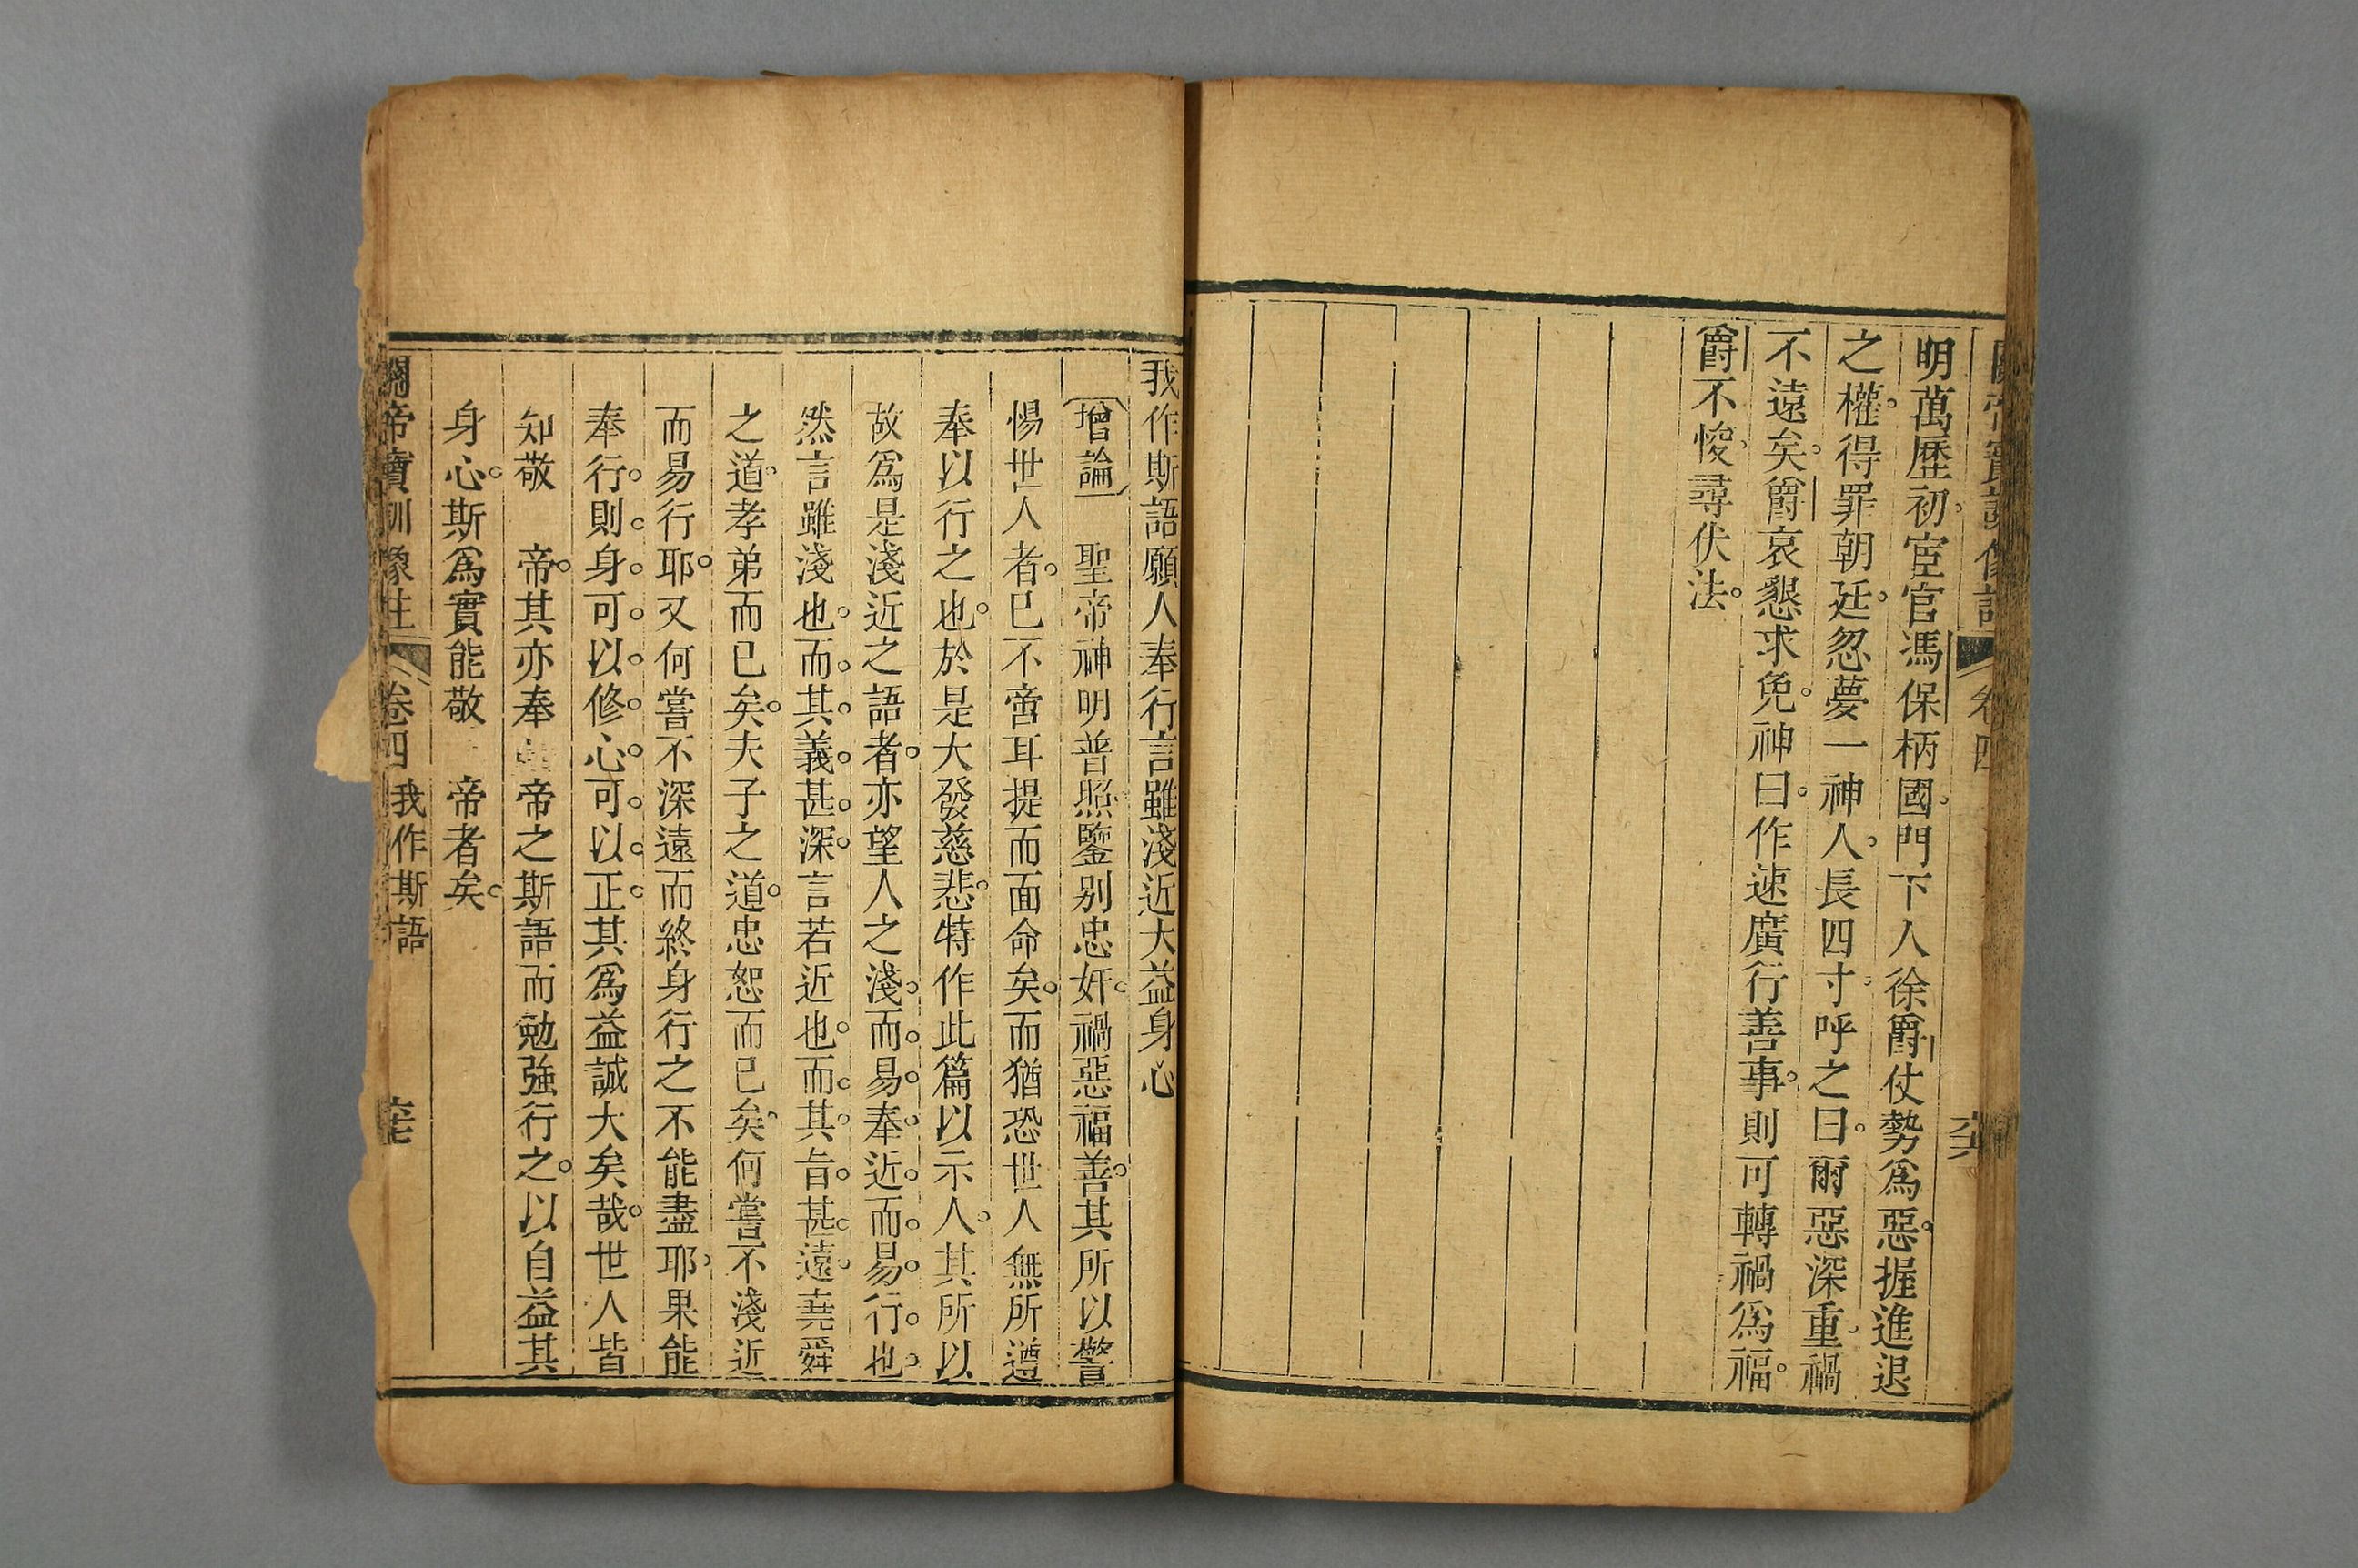 明萬歷初。宦官馮保柄國。門下人徐爵仗勢爲惡。握進退
之權。得罪朝廷。忽夢一神人。長四寸。呼之曰。爾惡深重。禍
不遠矣。爵哀懇求免。神曰。作速廣行善事。則可轉禍爲福。
爵不悛。尋伏法。
卷四
六十六
我作斯語願人奉行言雖淺近大益身心
增論 聖帝神明普照鑒別忠奸。禍惡福善。其所以警
惕世人者。已不啻耳提而面命矣。而猶恐世人無所遵
奉以行之也。於是大發慈悲。特作此篇以示人。其所以
故爲是淺近之語者。亦望人之淺。而。易。奉。近。而。易。行。也。
然言雖淺也。而。其。義。甚。深。言若近也。而。其。旨。甚。遠。堯舜
之道。孝弟而已矣。夫子之道。忠恕而已矣。何嘗不淺近
而易行耶。又何嘗不深遠而終身行之不能盡耶。果能
奉行。則。身。可。以。修。心。可。以。正。其爲益誠大矣哉。世人皆
知敬 帝。其亦奉 帝之斯語而勉強行之。以自益其
身心。斯爲實能敬 帝者矣。
關帝寶訓像註 卷四 我作斯語 六十七